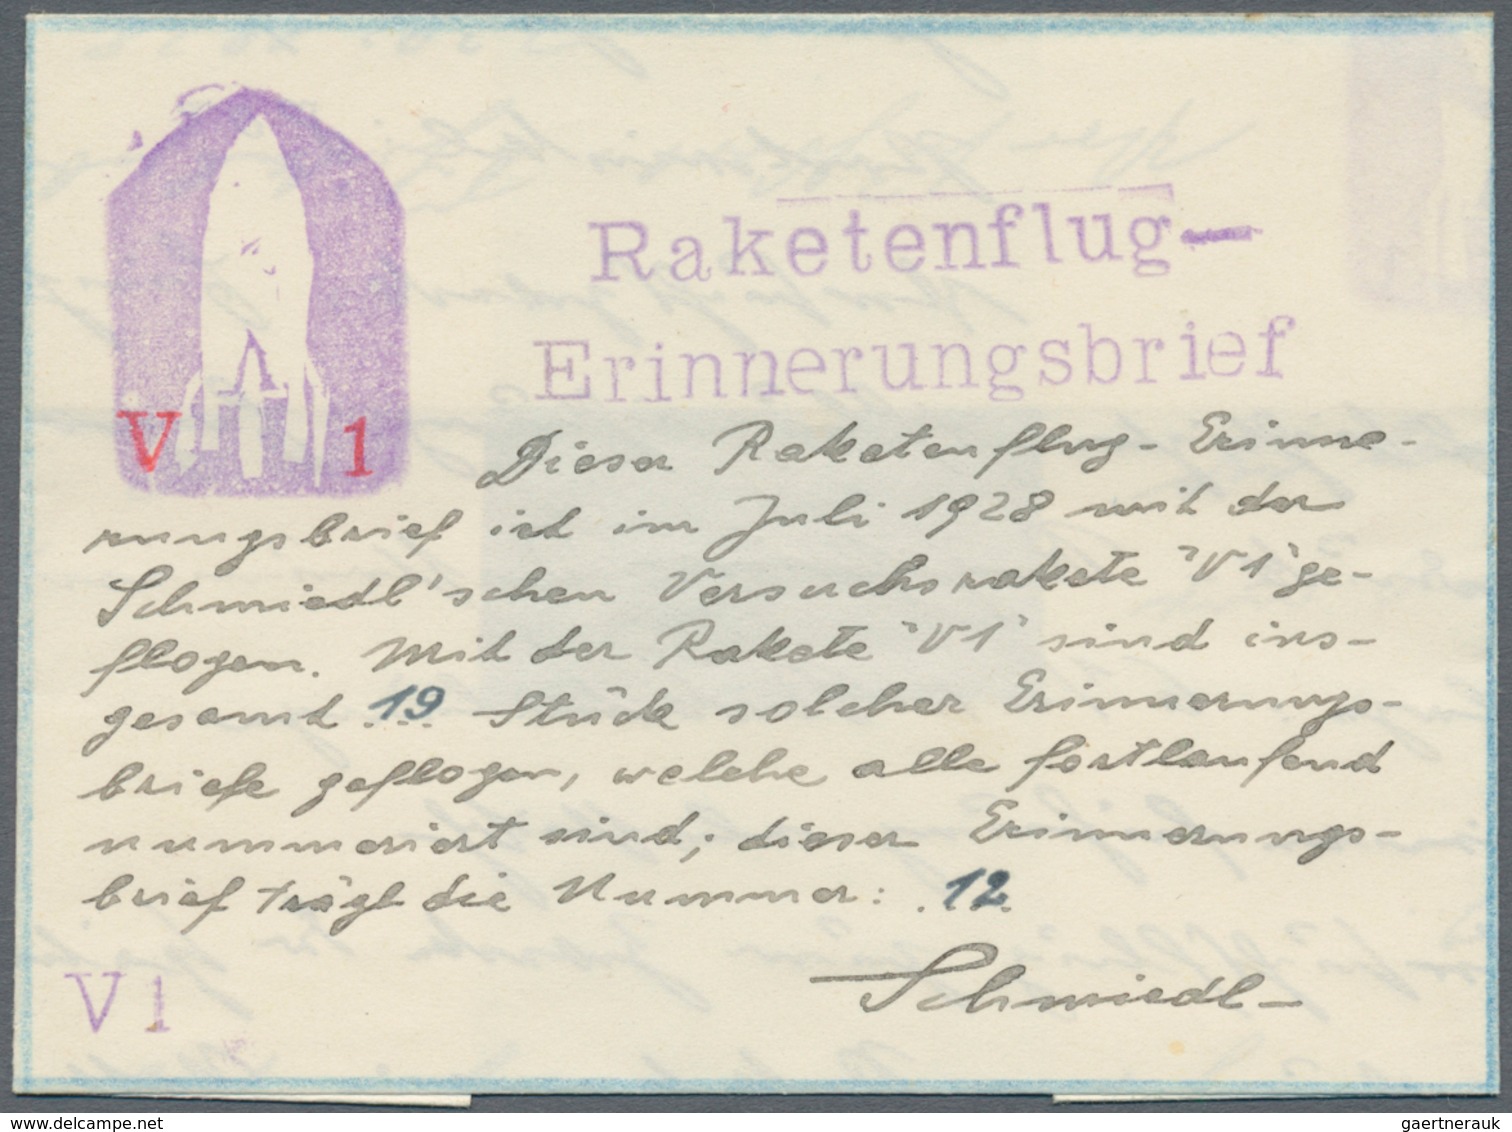 V 1
Raketenflug-
Erinnerungsbrief
Dieser Raketenflug-Erinne-
rungsbrief ist im Juli 1928 mit der
Schmiedl'schen Versuchsrakete "V1" ge-
flogen. Mit der Rakete "V1" sind ins-
gesamt 19 Stück solcher Erinnerungs-
briefe geflogen, welche alle fortlaufend
nummeriert sind; dieser Erinnerungs-
brief trägt die Nummer: 12
Schmiedl-
V1
www.delcampe.net
gaertnerauk